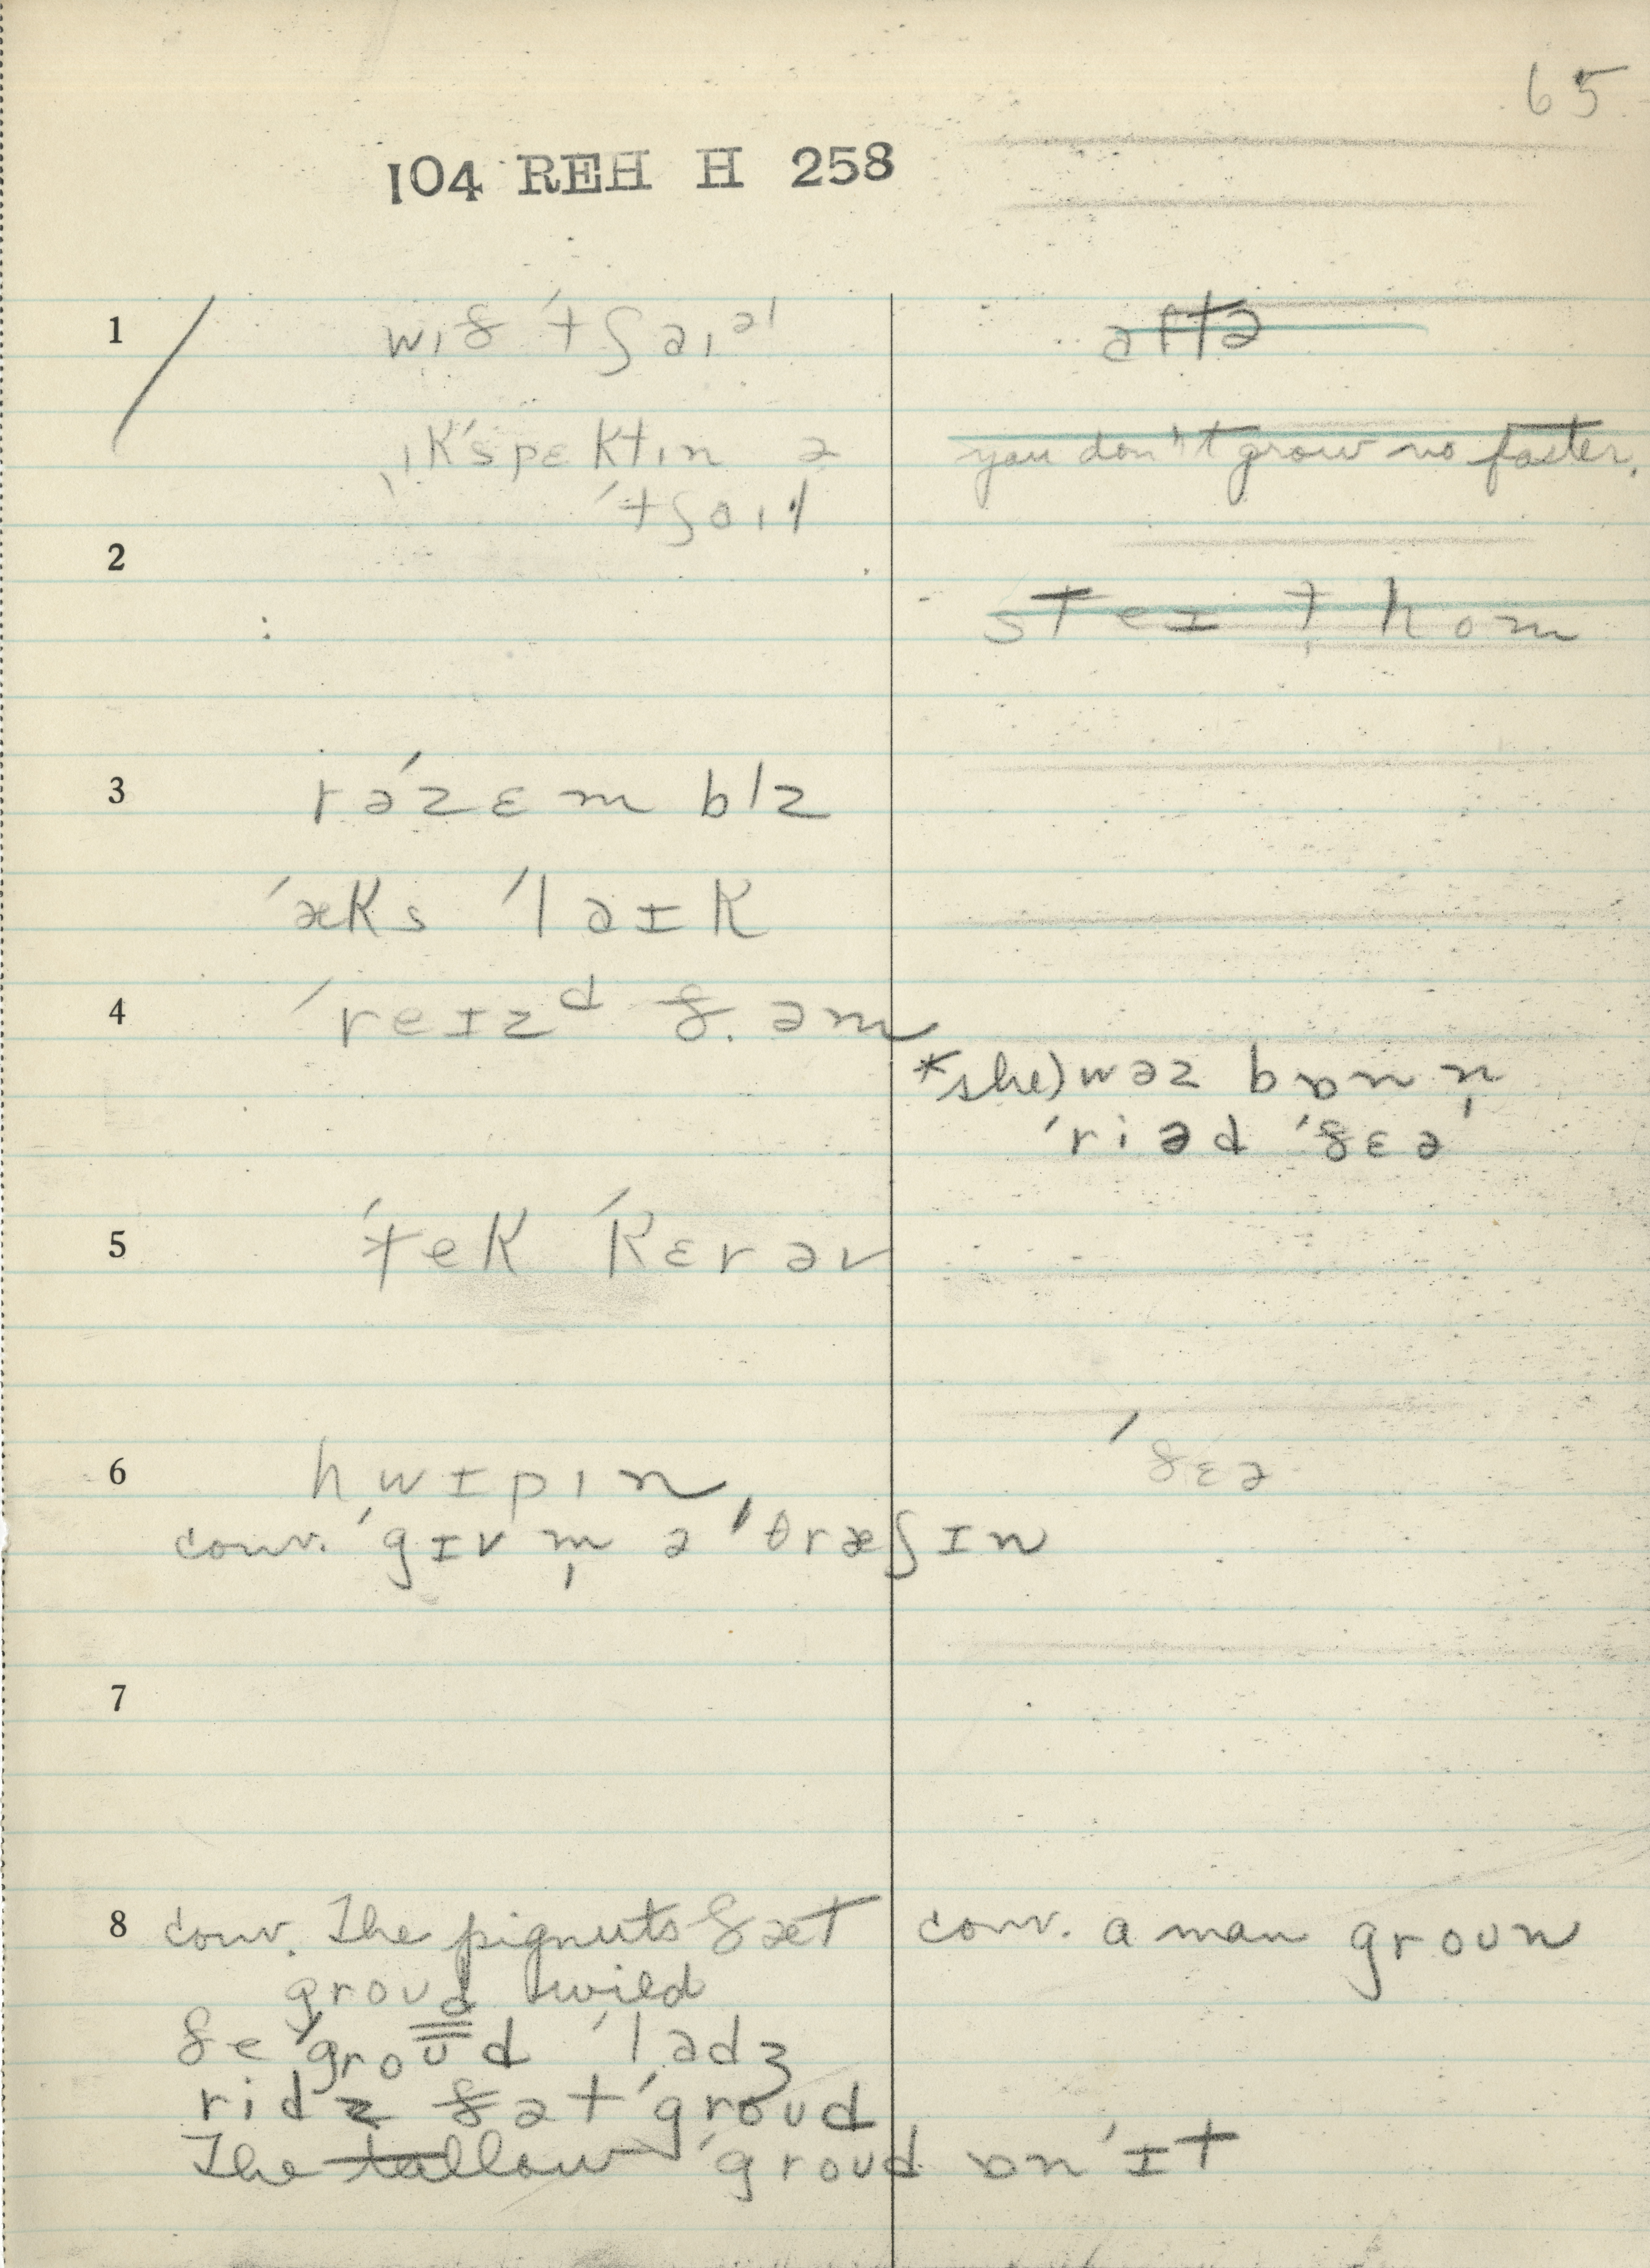 65
104 REH H 258
1 wɪð ˈtʃaɪəl
ɪkˈspɛktɪn ə
ˈtʃaɪl
aftə
you don't grow no faster.
2
steɪ t̩ hom
3 rəˈzɛmblz
ˈæks ˈlaɪk
4 ˈreɪzᵈ ð.əm
*she) wəz bɒn n̩
ˈriəd ˈðɛə
5 ˈtek ˈkɛrəv
6 hwɪpɪn
ˈðɛə
conv. ˈgɪv m̩ ə ˈθræʃɪn
7
8 conv. The pignuts ðæt
groud wild
ðe ˈgroud ˈladʒ
ridz ðət ˈgroud
The tallow ˈgroud ɒn ˈɪt
conv. a man groun